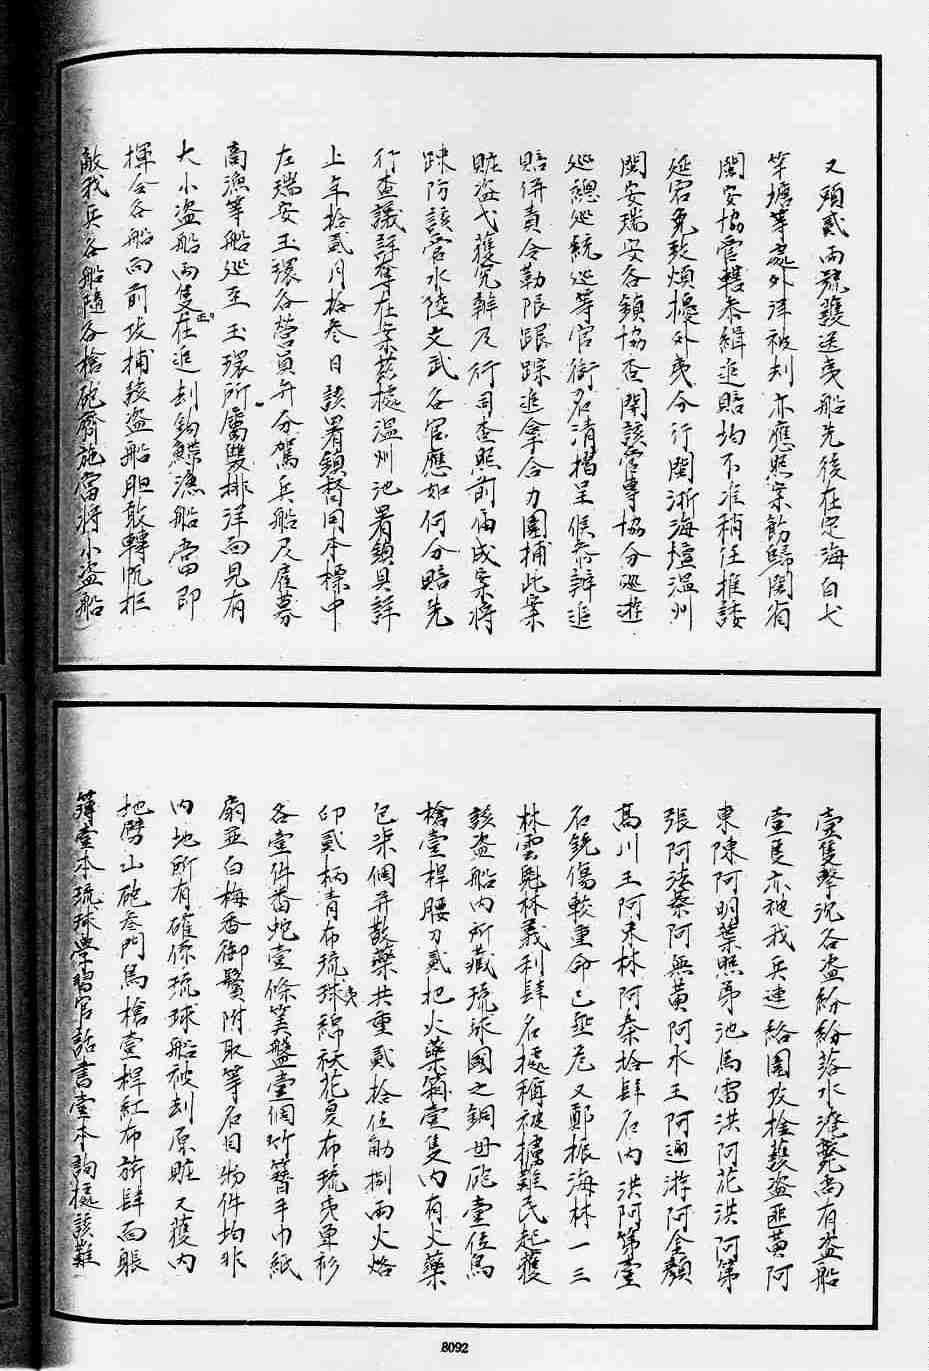 又頭貳兩號護送夷船先後在定海白犬
竿塘等處外洋被刦亦應照案飭歸閩省
閩安協管轄叅緝追賠均不准稍任推諉
延宕免致煩擾外夷分行閩浙海壇溫州
閩安瑞安各鎮協查開該管專協分廵遊
廵總廵統廵等官銜名清摺呈候叅辦追
賠併責令勒限跟踪追拿合力圍捕此案
賍盜弋獲究辦及行司查照前俻成案將
踈防該管水陸文武各官應如何分賠先
行查議詳奪在案茲據溫州池署鎮具詳
上年拾貳月拾叁日該署鎮督同本標中
左瑞安玉環各營員弁分駕兵船及雇募
商漁等船廵至玉環所屬雙排洋面見有
大小盜船兩隻正在追刦鈎鰾漁船當即
揮令各船向前攻捕該盜船胆敢轉帆拒
敵我兵各船隨各槍砲齊施當將小盜船
壹隻擊沉各盜紛紛落水淹斃尚有盜船
壹隻亦被我兵連絡圍攻捡獲盜匪黃阿
東陳阿明葉照弟池馬雷洪阿花洪阿第
張阿法蔡阿無黃阿水王阿通游阿全顏
高川王阿未林阿叅拾肆名內洪阿第壹
名銃傷較重命已垂危又鄭振海林一三
林雲魁林義利肆名據稱被擄難民起獲
該盜船內所藏琉球國之銅母砲壹位鳥
槍壹桿腰刀貳把火藥箱壹隻內有火藥
包柒個并散藥共重貳拾伍觔捌兩火烙
印貳柄青布琉球夷綿袄花夏布琉夷單衫
各壹件番蛇壹條筭盤壹個竹簪手巾紙
扇並白梅香御鬢附取等名目物件均非
內地所有確係琉球船被刦原賍又獲內
地劈山砲叁門鳥槍壹桿紅布旂肆面賬
簿壹本琉球學習官話書壹本詢據該難
8092